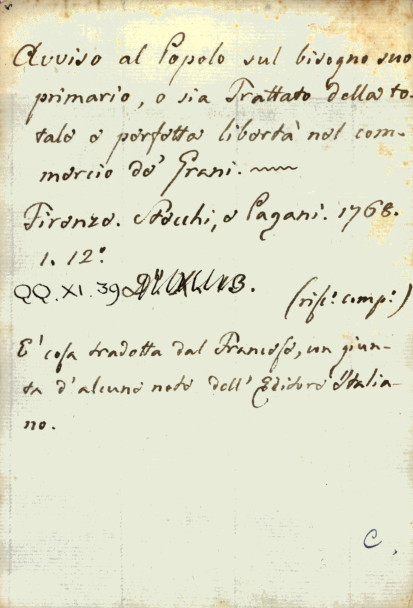 Avviso al Popolo sul bisogno suo
primario, o sia Trattato della to-
tale e perfetta libertà nel com-
mercio de' Grani.
Firenze. Stecchi, e Pagani. 1768.
1. 12º
QQ. XI. 39
(risc.º comp.º)
E' cosa tradotta dal Francese, con giun-
ta d'alcune note dell' Editore Italia-
no.
C.